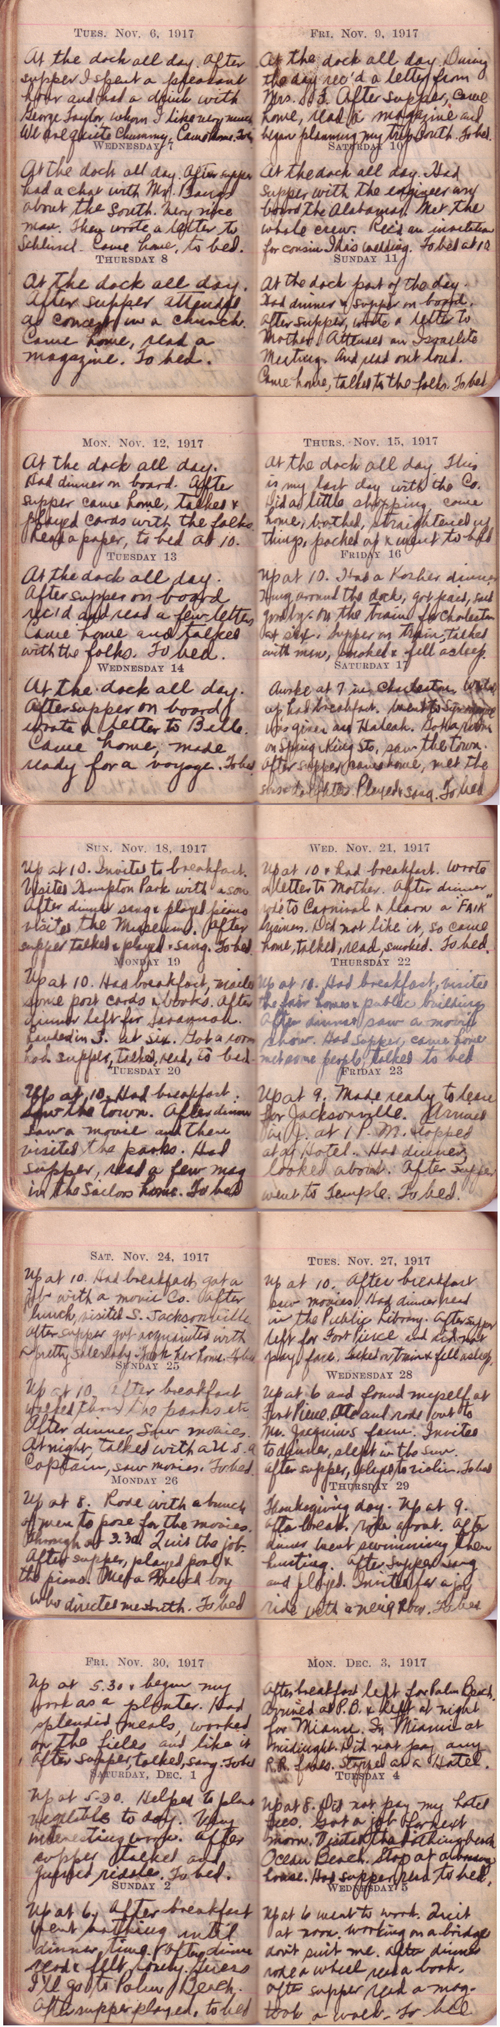 Tues. Nov. 6, 1917
At the dock all day. After
supper I spent a pleasant
hour and had a drink with
George Taylor, whom I like very much
We are quite chummy. Came home.
Wednesday 7
At the dock all day. After supper
had a chat with Mr.
about the South. Very nice
man. Then wrote a letter to
Came home, to bed.
Thursday 8
At the dock all day.
After supper attended
a concert in a church.
Came home, read a
magazine. To bed.
Fri. Nov. 9, 1917
At the dock all day. During
the day rec'd a letter from
Mrs. After supper, came
home, read a magazine and
began planning my trip South. To bed.
Saturday 10
At the dock all day. Had
supper with the engineer on
board the Alabama. Met the
whole crew. Rec'd an invitation
for cousin Ida's wedding. To bed at 12
Sunday 11
At the dock part of the day.
Had dinner & supper on board.
After supper, wrote a letter to
Mother. Attended an Israelite
Meeting. And read out loud.
Came home, talked to the folks. To bed
Mon. Nov. 12, 1917
At the dock all day.
Had dinner on board. After
supper came home, talked &
played cards with the folks.
Read a paper, to bed at 10.
Tuesday 13
At the dock all day.
After supper on board
rec'd and read a few letters
Came home and talked
with the folks. To bed.
Wednesday 14
At the dock all day.
After supper on board
wrote a letter to Belle.
Came home, made
ready for a voyage. To bed
Thurs. Nov. 15, 1917
At the dock all day. This
is my last day with the Co.
Did a little shopping, came
home, bathed, straightened up
things, packed up & went to bed
Friday 16
Up at 10. Had a Kosher dinner
Hung around the dock, got paid, said
goodby. On the train for Charleston
at six. Supper on train, talked
with men, smoked & fell asleep.
Saturday 17
Awoke at 7 in Charleston.
up, had breakfast. went to Synagogue
was given an Haleah. Got a room
on Spring & King Sts, saw the town.
After supper came home, met the
Played & sang. To bed
Sun. Nov. 18, 1917
Up at 10. Invited to breakfast.
Visited Hampton Park with a son
After dinner sang & played piano
visited the Museum. After
supper talked & played & sang. To bed
Monday 19
Up at 10. Had breakfast, mailed
some post cards & books. After
dinner left for Savannah.
Landed in S. at six. Got a room
had supper, talked, read, to bed.
Tuesday 20
Up at 10. Had breakfast.
Saw the town. After dinner
saw a movie and then
visited the parks. Had
supper, read a few mag
in the Sailors home. To bed
Wed. Nov. 21, 1917
Up at 10 & had breakfast. Wrote
a letter to Mother. After dinner
went to Carnival & learn a "FAIR"
business. Did not like it, so came
home, talked, read, smoked. To bed.
Thursday 22
Up at 10. Had breakfast, visited
the fair homes & public building
After dinner saw a movie
show. Had supper, came home
met some people, talked to bed
Friday 23
Up at 9. Made ready to leave
for Jacksonville. Arrived
in J. at 1 P.M. Stopped
at a Hotel. Had dinner,
looked about. After supper
went to Temple. To bed.
Sat. Nov. 24, 1917
Up at 10. Had breakfast, got a
job with a movie Co. After
lunch, visited S. Jacksonville
After supper got acquainted with
a pretty Saleslady. Took her home. To bed
Sunday 25
Up at 10. After breakfast
walked thru the parks etc
After dinner saw movies.
At night, talked with a U.S.A
Captain, saw movies. To bed.
Monday 26
Up at 8. Rode with a bunch
of men to pose for the movies.
Through at 3.30. Quit the job.
After supper, played pool &
the piano. Met a French boy
who directed me South. To bed
Tues. Nov. 27, 1917
Up at 10. After breakfast
saw movies. Had dinner, read
in the Public Library. After supper
left for Fort Pierce and did not
pay fare. Talked on train & fell asleep
Wednesday 28
Up at 6 and found myself at
Fort Pierce. Ate and rode out to
Mr. Jacquins farm. Invited
to dinner, slept in the sun.
After supper, played violin. To bed
Thursday 29
Thanksgiving day. Up at 9.
After break. rode about. After
dinner went swimming then
hunting. After supper sang
and played. Invited for a joy
ride with a neighbor. To bed
Fri. Nov. 30, 1917
Up at 5.30 & began my
work as a planter. Had
splendid meals, worked
on the fields and like it
After supper, talked, sang. To bed
Saturday, Dec. 1
Up at 5.30. Helped to plant
vegetables to day. Very
interesting work. After
supper talked and
guessed riddles. To bed.
Sunday 2
Up at 6. After breakfast
went bathing until
dinner time. After dinner
read & felt lonely. Guess
I'll go to Palm Beach.
After supper played, to bed
Mon. Dec. 3, 1917
After breakfast left for Palm Beach,
Arrived at P.B. & left at night
for Miami. In Miami at
midnight. Did not pay any
R.R. fares. Stopped at a Hotel.
Tuesday 4
Up at 8. Did not pay my hotel
fees. Got a job for next
morn. Visited the bathing beach
Ocean Beach. Stop at a
house. Had supper, read to bed.
Wednesday 5
Up at 6 went to work. Quit
at noon. Working on a bridge
don't suit me. After dinner
rode a wheel read a book.
After supper read a mag.
took a walk. To bed